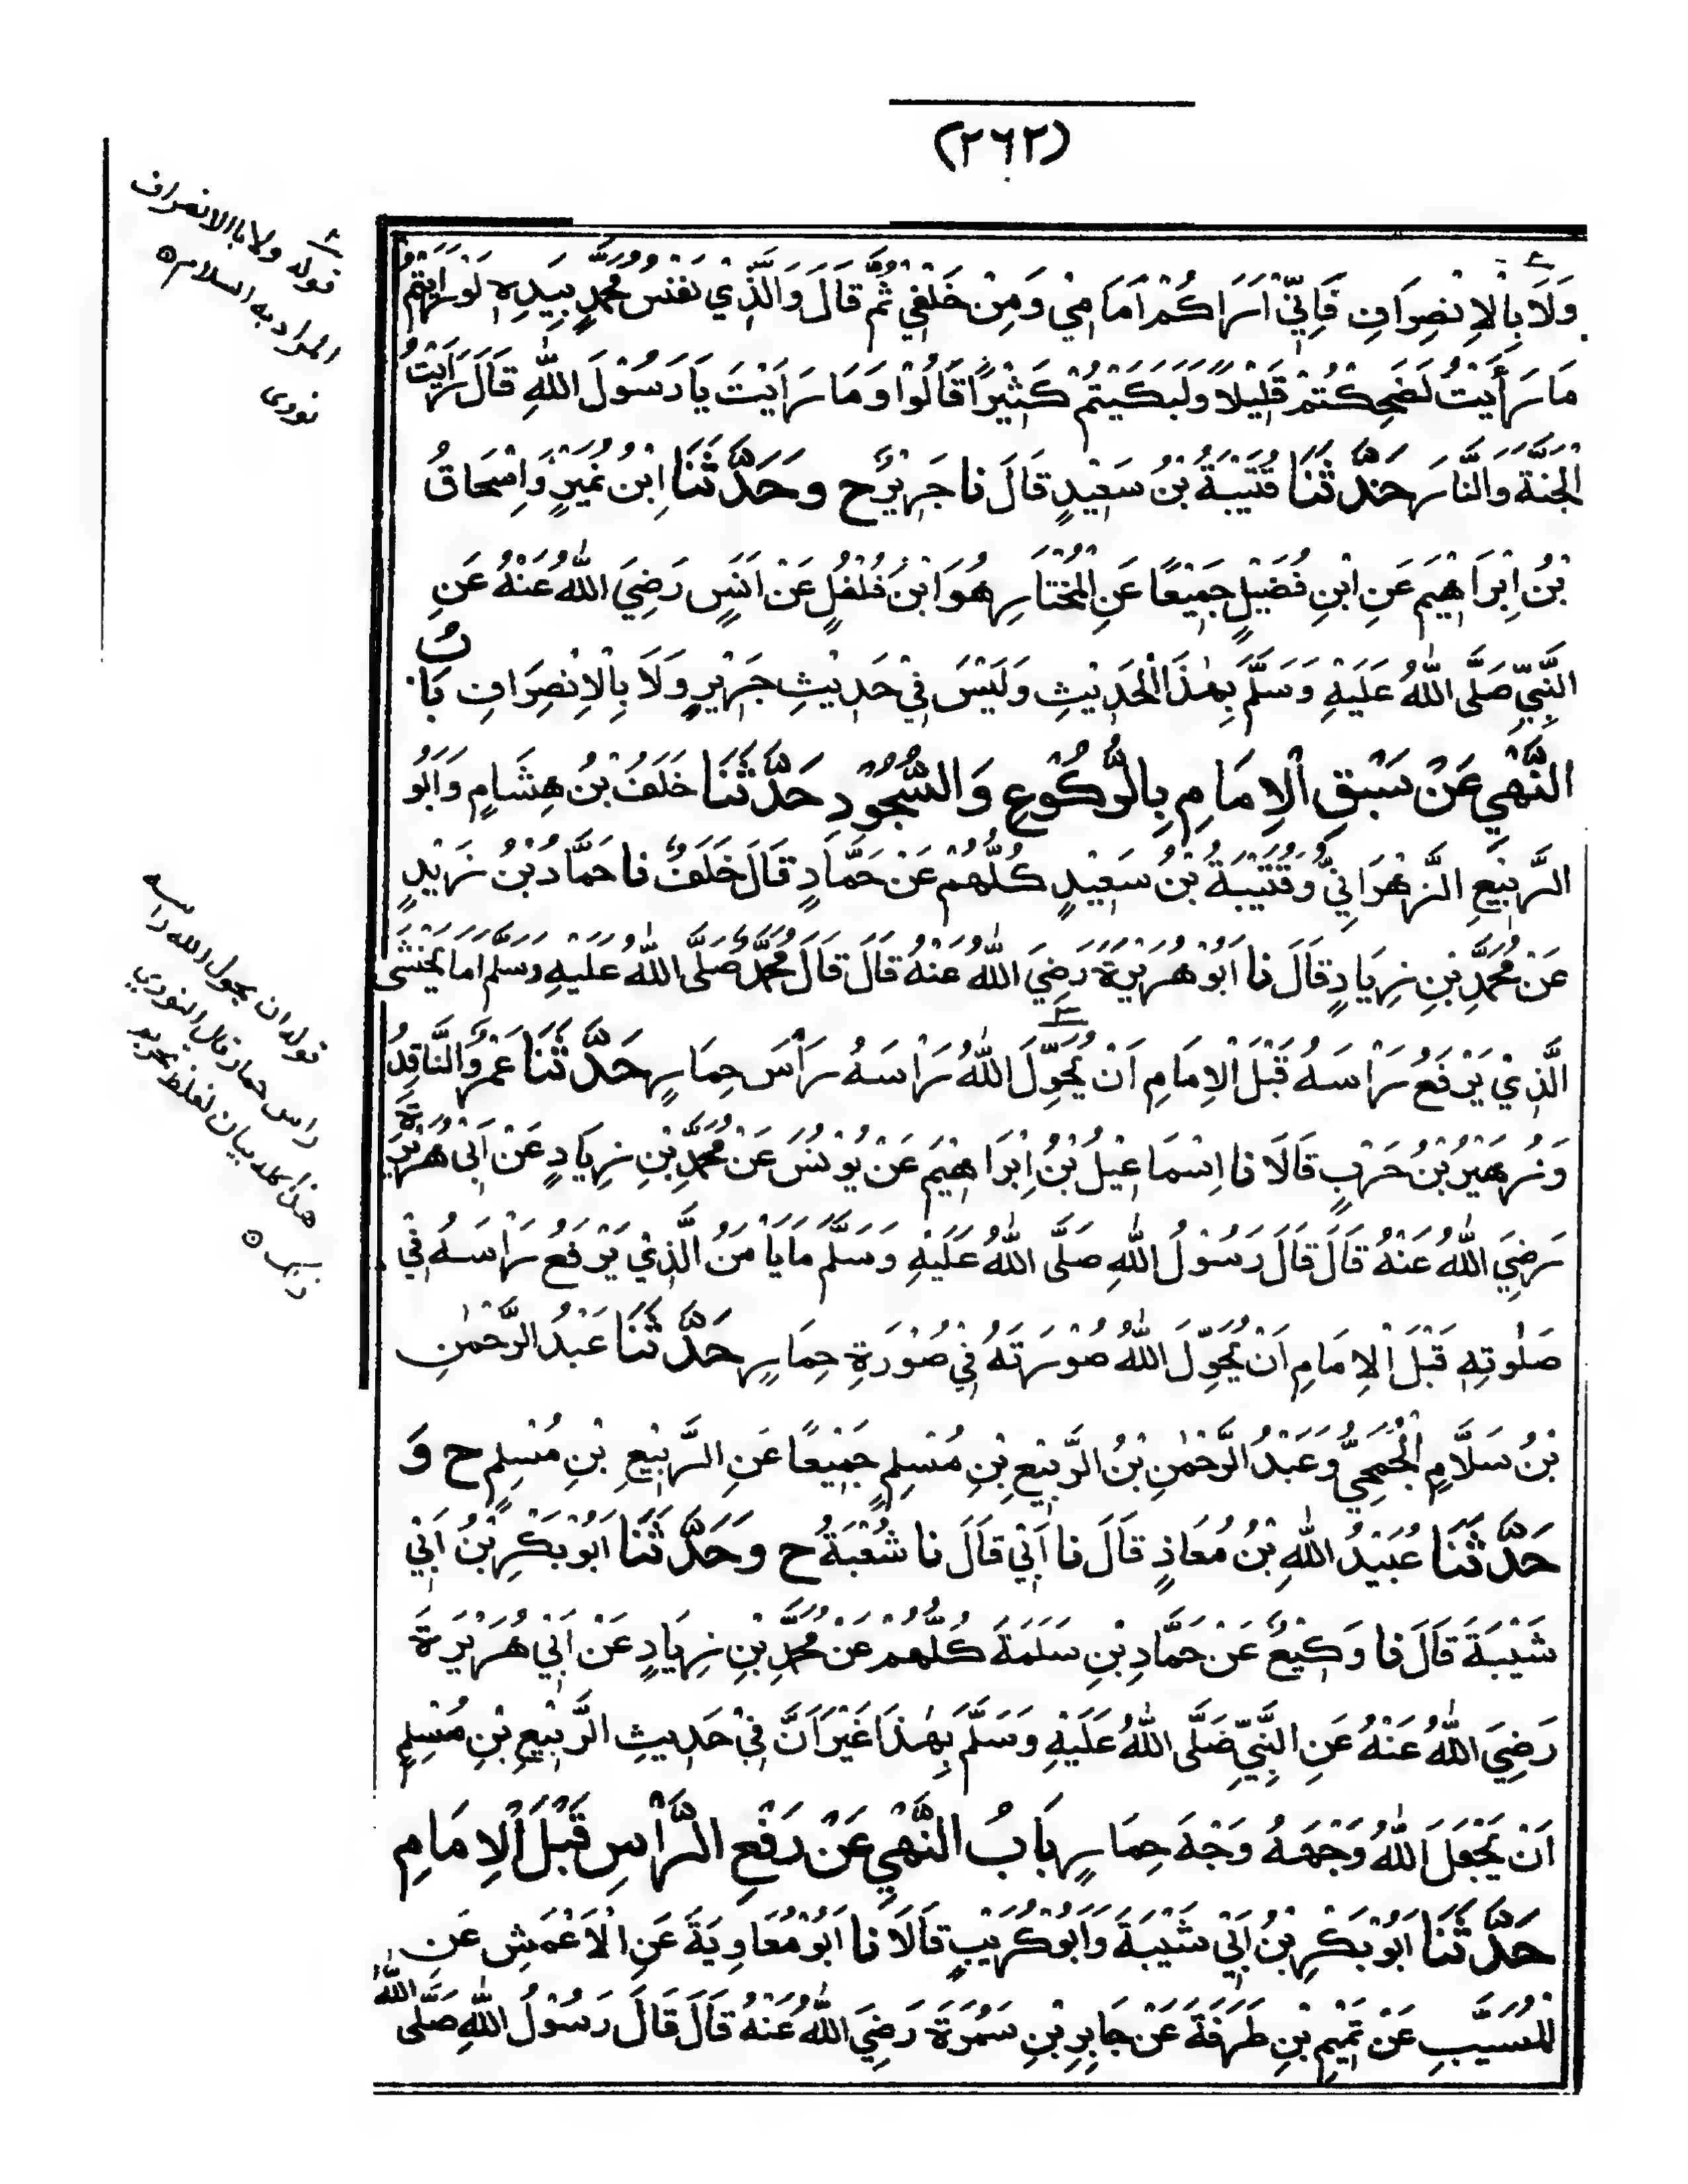 (٢٦٢)
وَلَا بِالْاِنْصِرَافِ فَاِنِّيْ اَرَاكُمْ اَمَامِيْ وَمِنْ خَلْفِيْ ثُمَّ قَالَ وَالَّذِيْ نَفْسُ مُحَمَّدٍ بِيَدِهٖ لَوْ رَاَيْتُمْ
مَا رَأَيْتُ لَضَحِكْتُمْ قَلِيْلًا وَلَبَكَيْتُمْ كَثِيْرًا قَالُوْا وَمَا رَاَيْتَ يَا رَسُوْلَ اللّٰهِ قَالَ رَاَيْتُ
الْجَنَّةَ وَالنَّارَ حَدَّثَنَا قُتَيْبَةُ بْنُ سَعِيْدٍ قَالَ نَا جَرِيْرٌ ح وَحَدَّثَنَا ابْنُ نُمَيْرٍ وَاِسْحَاقُ
بْنُ اِبْرَاهِيْمَ عَنِ ابْنِ فُضَيْلٍ جَمِيْعًا عَنِ الْمُخْتَارِ هُوَ ابْنُ فُلْفُلٍ عَنْ اَنَسٍ رَضِيَ اللّٰهُ عَنْهُ عَنِ
النَّبِيِّ صَلَّى اللّٰهُ عَلَيْهِ وَسَلَّمَ بِهٰذَا الْحَدِيْثِ وَلَيْسَ فِيْ حَدِيْثِ جَرِيْرٍ وَلَا بِالْاِنْصِرَافِ بَابُ
النَّهْيِ عَنْ سَبْقِ الْاِمَامِ بِالرُّكُوْعِ وَالسُّجُوْدِ حَدَّثَنَا خَلَفُ بْنُ هِشَامٍ وَاَبُو
الرَّبِيْعِ الزَّهْرَانِيُّ وَقُتَيْبَةُ بْنُ سَعِيْدٍ كُلُّهُمْ عَنْ حَمَّادٍ قَالَ خَلَفٌ نَا حَمَّادُ بْنُ زَيْدٍ
عَنْ مُحَمَّدِ بْنِ زِيَادٍ قَالَ نَا اَبُوْ هُرَيْرَةَ رَضِيَ اللّٰهُ عَنْهُ قَالَ قَالَ مُحَمَّدٌ صَلَّى اللّٰهُ عَلَيْهِ وَسَلَّمَ اَمَا يَخْشَى
الَّذِيْ يَرْفَعُ رَاْسَهُ قَبْلَ الْاِمَامِ اَنْ يُّحَوِّلَ اللّٰهُ رَاْسَهُ رَاْسَ حِمَارٍ حَدَّثَنَا عَمْرٌو النَّاقِدُ
وَزُهَيْرُ بْنُ حَرْبٍ قَالَا نَا اِسْمَاعِيْلُ بْنُ اِبْرَاهِيْمَ عَنْ يُوْنُسَ عَنْ مُحَمَّدِ بْنِ زِيَادٍ عَنْ اَبِيْ هُرَيْرَةَ
رَضِيَ اللّٰهُ عَنْهُ قَالَ قَالَ رَسُوْلُ اللّٰهِ صَلَّى اللّٰهُ عَلَيْهِ وَسَلَّمَ مَا يَاْمَنُ الَّذِيْ يَرْفَعُ رَاْسَهُ فِيْ
صَلٰوتِهٖ قَبْلَ الْاِمَامِ اَنْ يُّحَوِّلَ اللّٰهُ صُوْرَتَهُ فِيْ صُوْرَةِ حِمَارٍ حَدَّثَنَا عَبْدُ الرَّحْمٰنِ
بْنُ سَلَّامٍ الْجُمَحِيُّ وَعَبْدُ الرَّحْمٰنِ بْنُ الرَّبِيْعِ بْنِ مُسْلِمٍ جَمِيْعًا عَنِ الرَّبِيْعِ بْنِ مُسْلِمٍ ح وَ
حَدَّثَنَا عُبَيْدُ اللّٰهِ بْنُ مُعَاذٍ قَالَ نَا اَبِيْ قَالَ نَا شُعْبَةُ ح وَحَدَّثَنَا اَبُوْ بَكْرِ بْنُ اَبِيْ
شَيْبَةَ قَالَ نَا وَكِيْعٌ عَنْ حَمَّادِ بْنِ سَلَمَةَ كُلُّهُمْ عَنْ مُحَمَّدِ بْنِ زِيَادٍ عَنْ اَبِيْ هُرَيْرَةَ
رَضِيَ اللّٰهُ عَنْهُ عَنِ النَّبِيِّ صَلَّى اللّٰهُ عَلَيْهِ وَسَلَّمَ بِهٰذَا غَيْرَ اَنَّ فِيْ حَدِيْثِ الرَّبِيْعِ بْنِ مُسْلِمٍ
اَنْ يَّجْعَلَ اللّٰهُ وَجْهَهُ وَجْهَ حِمَارٍ بَابُ النَّهْيِ عَنْ رَفْعِ الرَّاْسِ قَبْلَ الْاِمَامِ
حَدَّثَنَا اَبُوْ بَكْرِ بْنُ اَبِيْ شَيْبَةَ وَاَبُوْ كُرَيْبٍ قَالَا نَا اَبُوْ مُعَاوِيَةَ عَنِ الْاَعْمَشِ عَنِ
الْمُسَيَّبِ عَنْ تَمِيْمِ بْنِ طَرَفَةَ عَنْ جَابِرِ بْنِ سَمُرَةَ رَضِيَ اللّٰهُ عَنْهُ قَالَ قَالَ رَسُوْلُ اللّٰهِ صَلَّى اللّٰهُ
قوله ولا بالانصراف
المراد به السلام
نووى
قوله ان يحول الله راسه
راس حمار قال النووي
هذا كله بيان لغلظ تحريم
ذلك